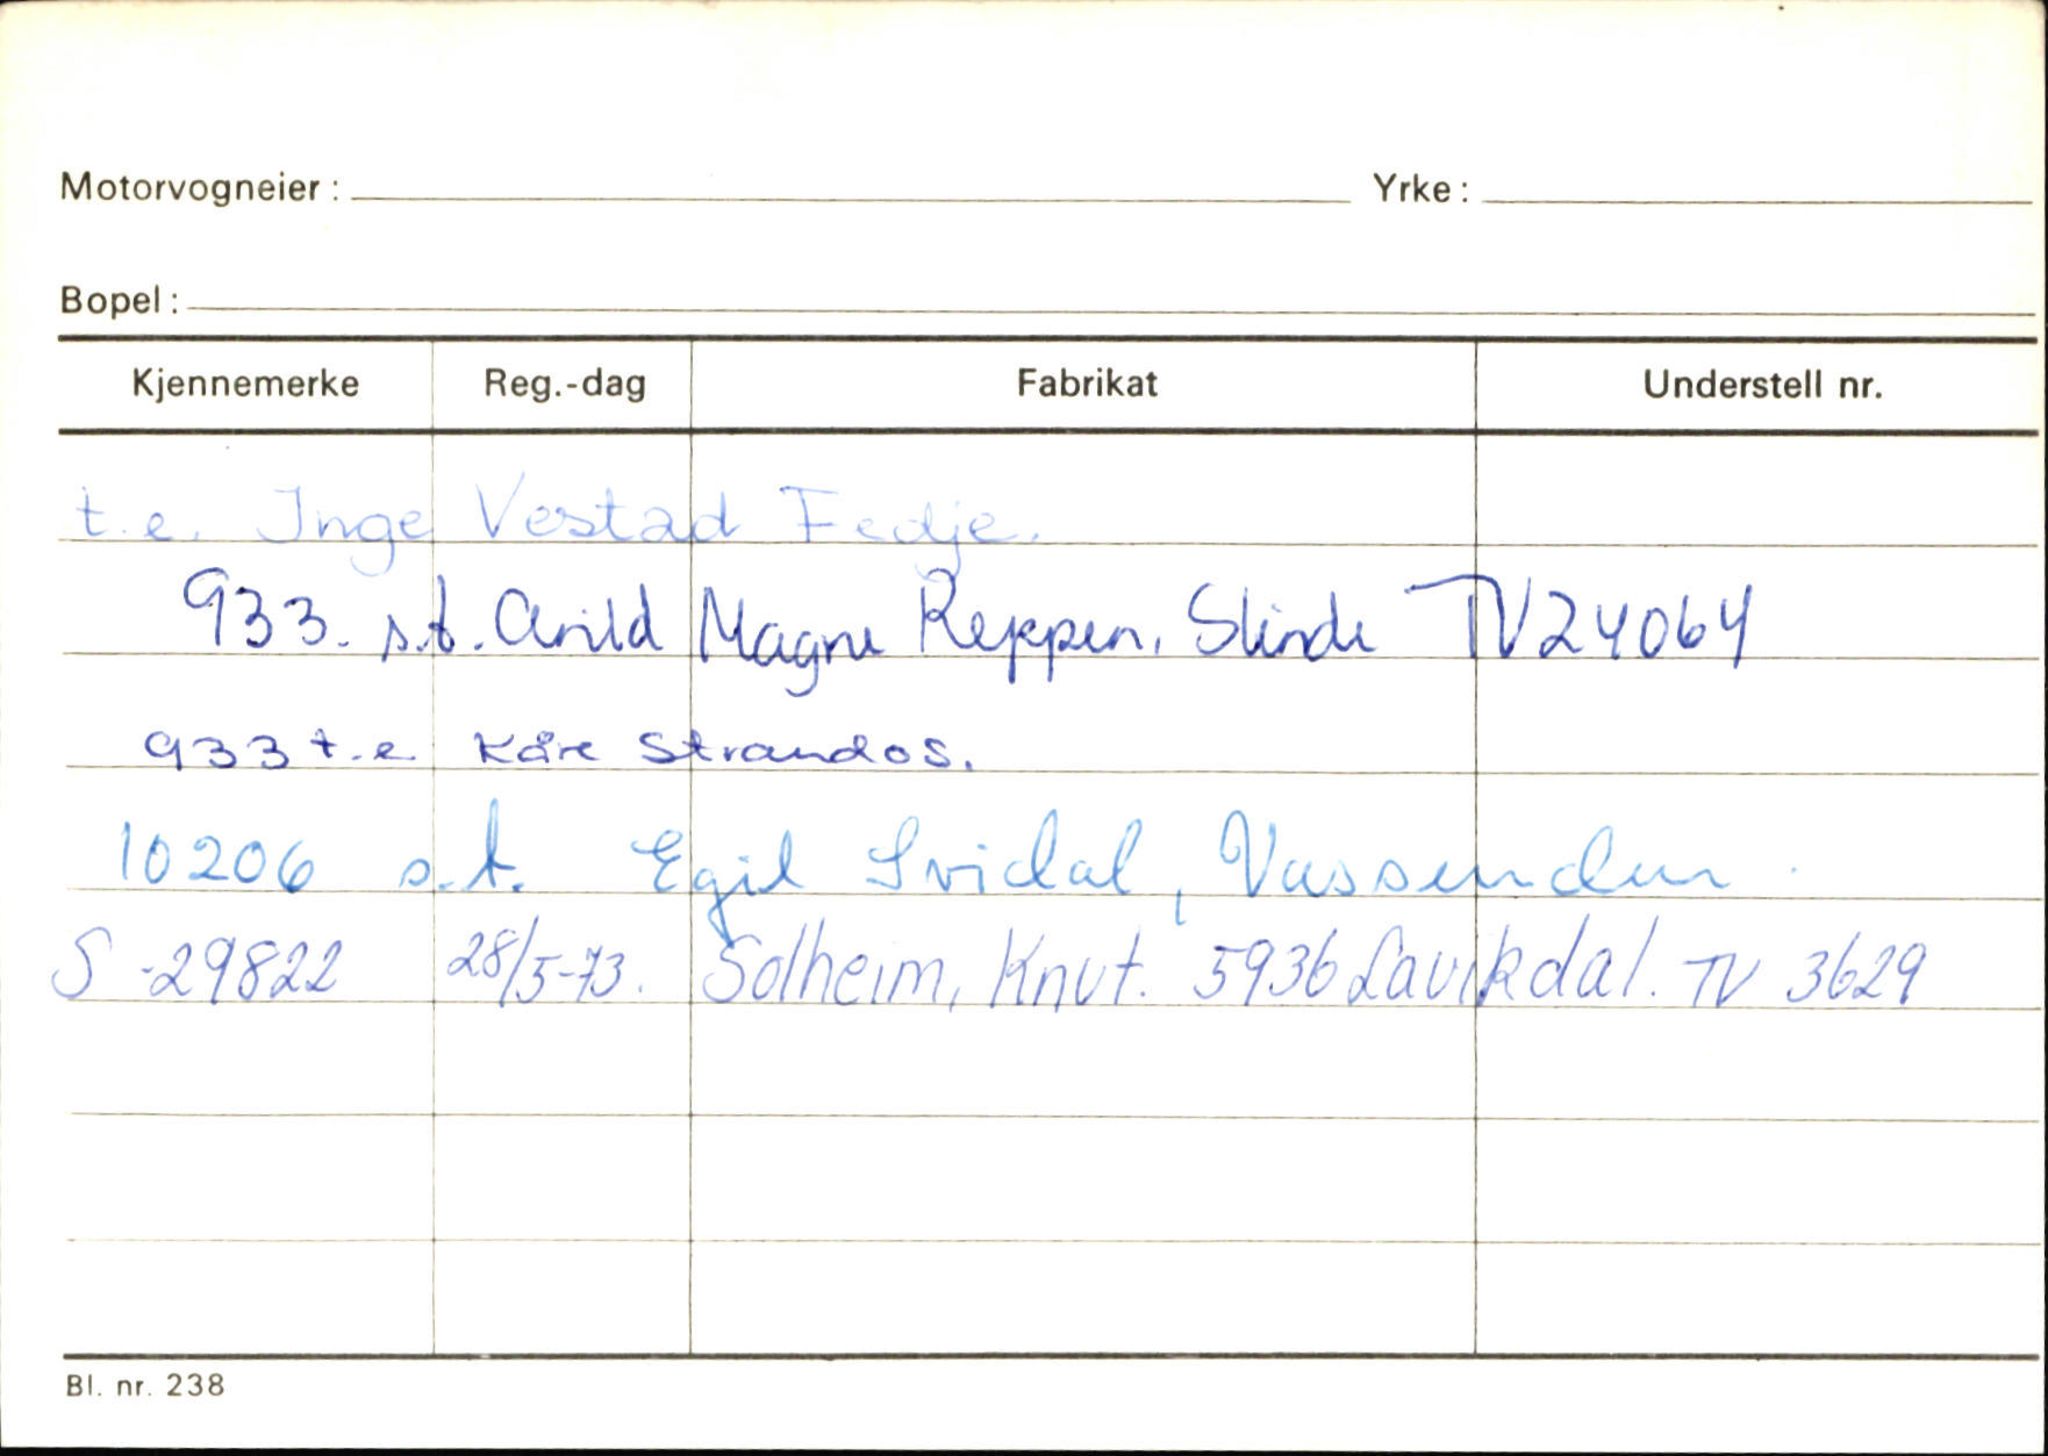 Motorvogneier: Yrke:
Bopel:
Kjennemerke Reg.-dag Fabrikat Understell nr.
t.e. Inge Vestad Fedje.
933. s.t. Arild Magne Reppen, Slinde TV24064
933 t.e Kåre Strandos.
10206 s.t. Egil Svidal, Vassenden.
S-29822 28/5-73. Solheim, Knut. 5936 Lavikdal. TV 3629
Bl. nr. 238